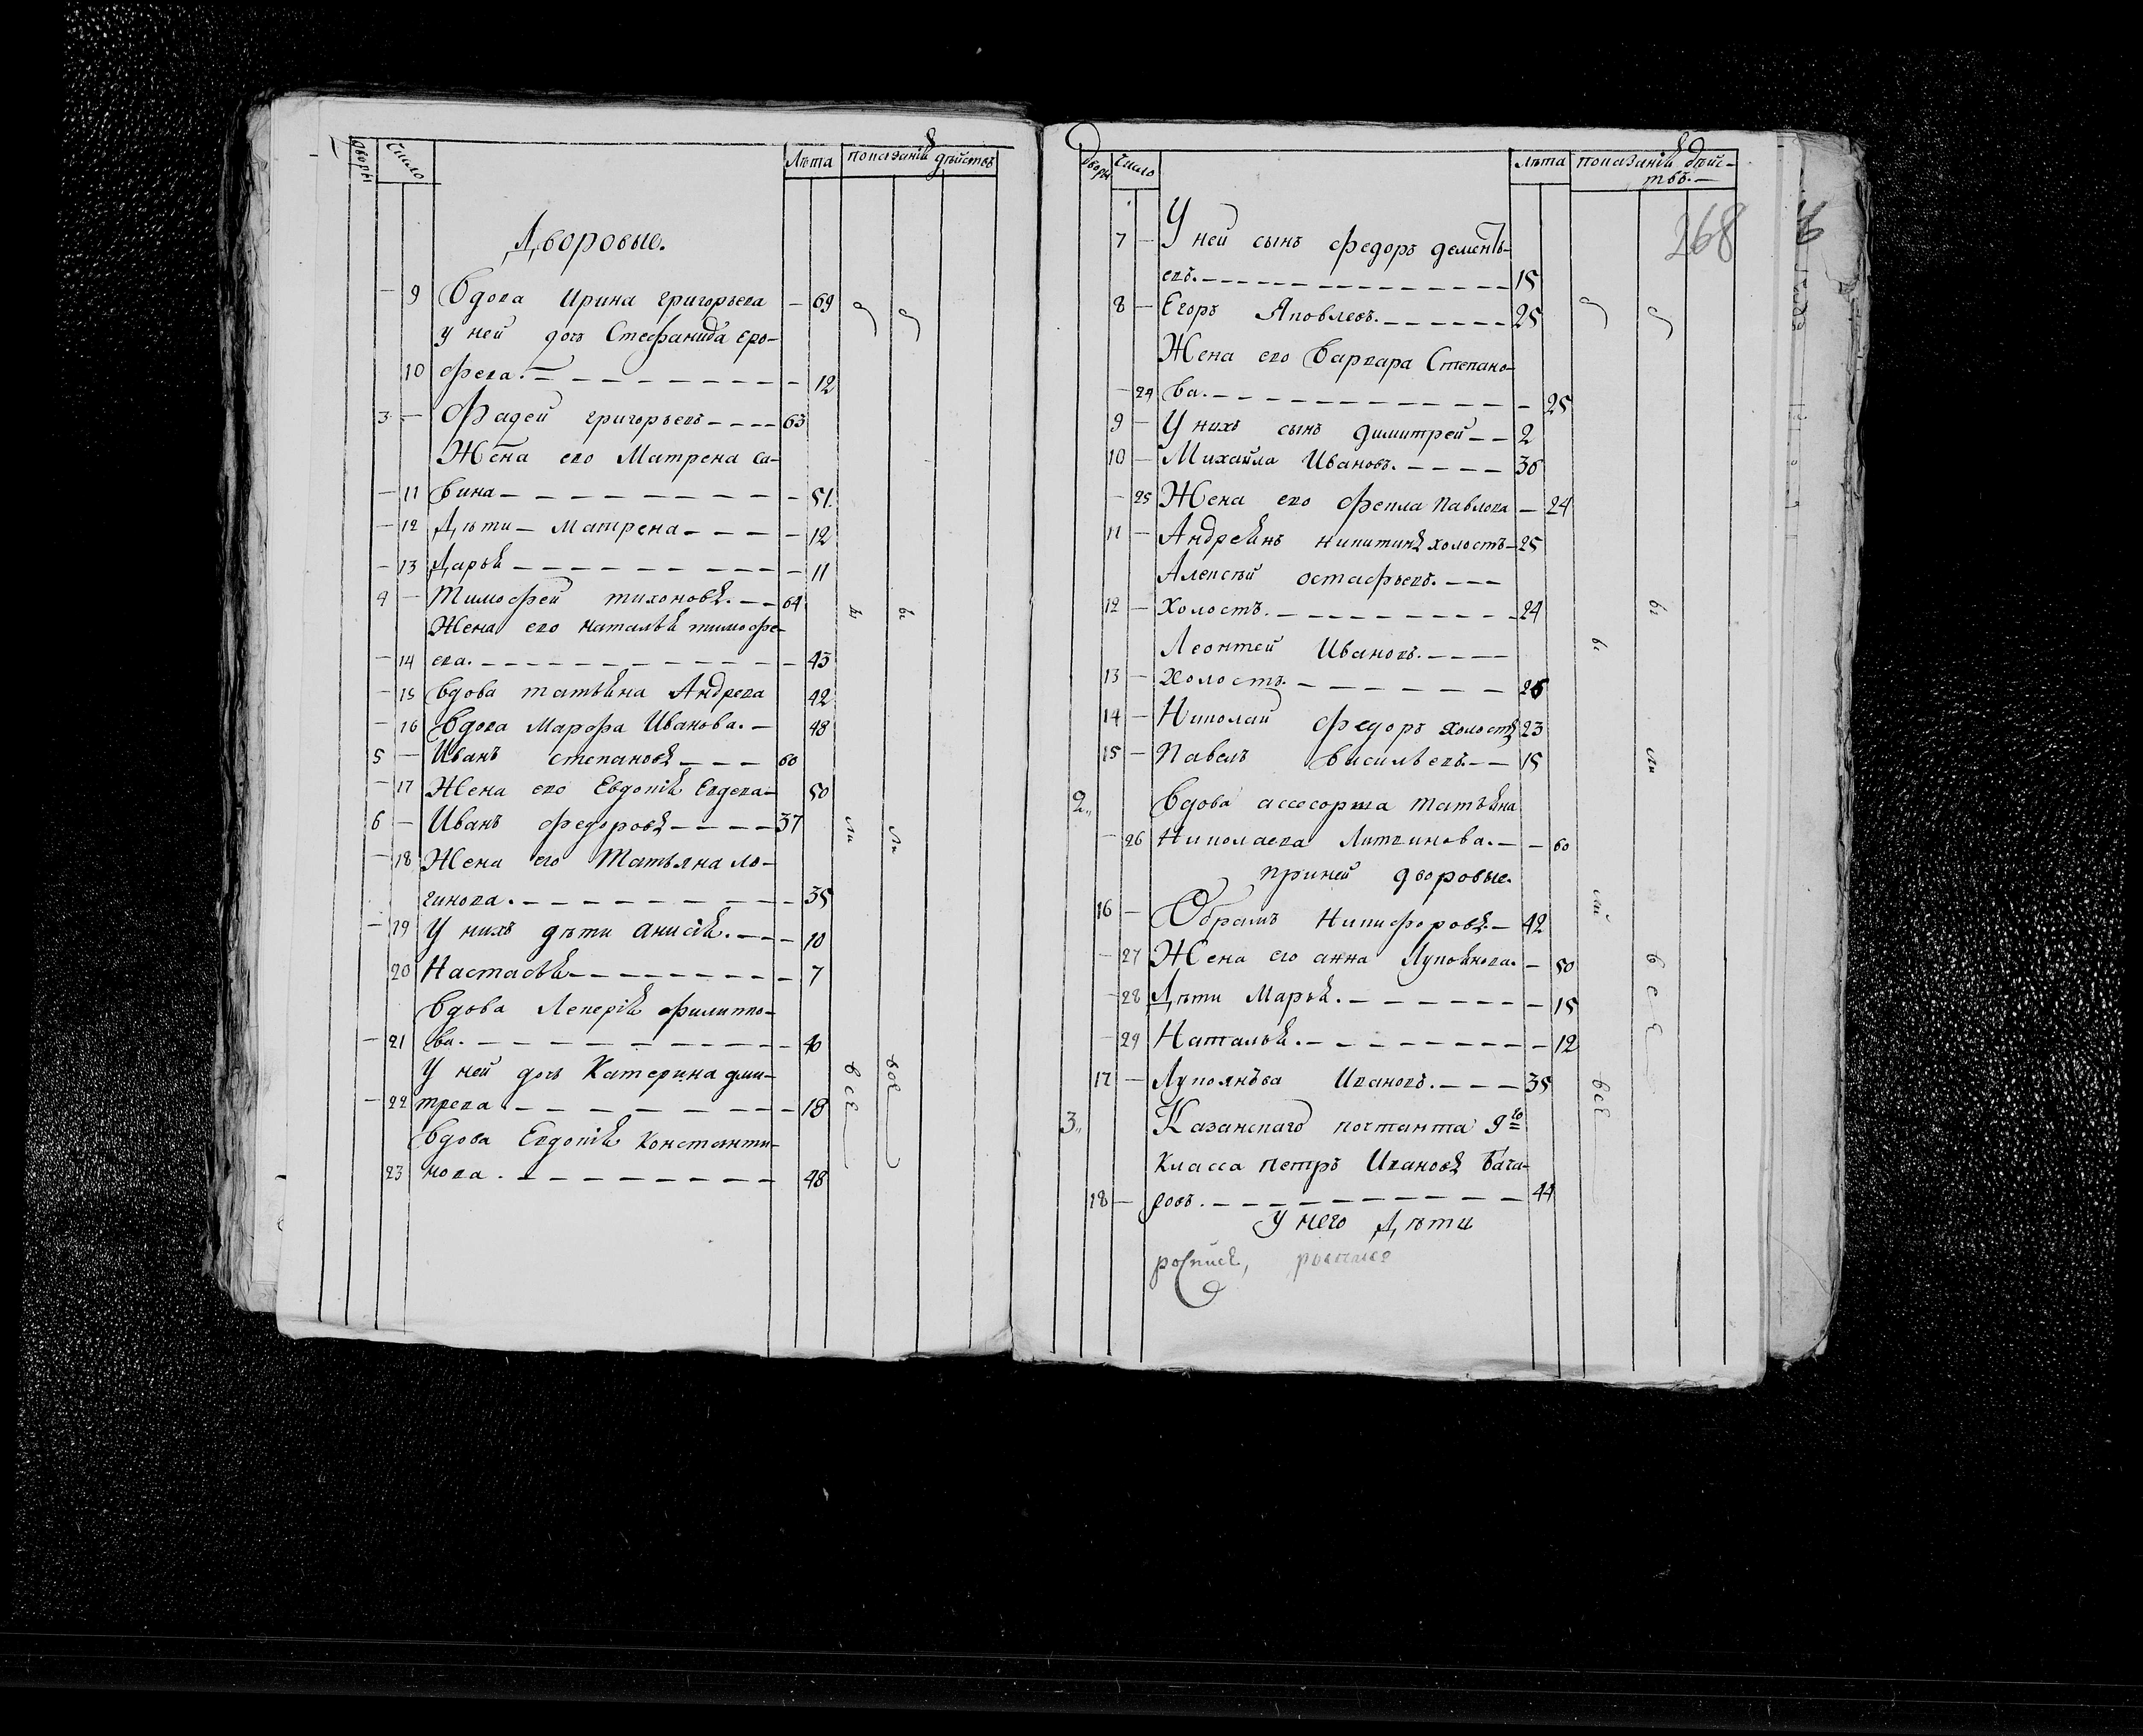 дворы число Лѣта показанiѧ дѣйствъ
Дворовые.
9 Вдова Ирина григорьева 69
у ней дочь Стефанида еро-
10 фева. 12
3 Фадей григорьевъ 63
Жена его Матрена са-
11 вина 51.
12 Дѣти Матрена 12
13 Дарьѧ 11
4 Тимофей тихоновъ. 64
Жена его натальѧ тимофе-
14 ева. 43
15 Вдова татьѧна Андрева 42
16 Вдова Марфа Иванова. 48
5 Иванъ степановъ 60
17 Жена его Евдокiѧ Авдева 50
6 Иванъ федоровъ 37
18 Жена его Татьяна ло-
гинова. 35
19 У нихъ дѣти анисiѧ. 10
20 Настасьѧ 7
Вдова Лекерiѧ филиппо-
21 ва. 40
У ней дочь Катерина дми-
22 трева 18
Вдова Евдокiѧ Константи-
23 нова. 48
бы бы
ли ли
всѣ
дворы число лѣта показанiѧ дѣйс-
твъ.
268
7 У ней сынъ федоръ дементь-
евъ. 15
8 Егоръ Яковлевъ. 25
Жена его Варвара Степано-
24 ва. 25
9 У нихъ сынъ димитрей 2
10 Михайла Ивановъ. 36
25 Жена его фекла Павлова 24
11 Андреѧнъ никитинъ холостъ 25
Алексѣй остафьевъ.
12 Холостъ. 24
Леонтей Ивановъ.
13 Холостъ. 26
14 Николай федоръ холостъ 23
15 Павелъ Васильевъ 15
2. Вдова ассесорша татьѧна
26 Николаева Литвинова. 60
при ней дворовые.
16 Обрамъ Никифоровъ. 42
27 Жена его анна Лукоѧнова. 50
28 Дѣти Марьѧ. 15
29 Натальѧ. 12
17 Лукоянъва Ивановъ. 35
3. Казанскаго почтамта 9го
класса петръ Ивановъ Бача-
18 ровъ. 44
у него Дѣти
бы бы
ли
всѣ
всѣ